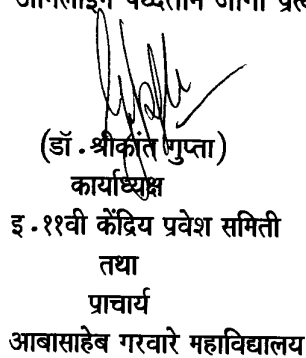 पध्दतीने जागा
(डॉ . श्रीकांत गुप्ता)
कार्याध्यक्ष
इ . ११वी केंद्रिय प्रवेश समिती
तथा
प्राचार्य
आबासाहेब गरवारे महाविद्यालय